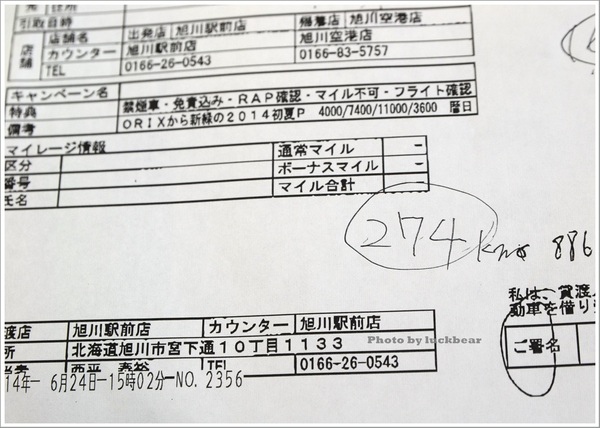 引取日時
店舗 店舗名 出発店 旭川駅前店 帰着店 旭川空港店
カウンター 旭川駅前店 旭川空港店
TEL 0166-26-0543 0166-83-5757
キャンペーン名
特典 禁煙車・免責込み・RAP確認・マイル不可・フライト確認
備考 ORIXから新緑の2014初夏P 4000/7400/11000/3600 暦日
マイレージ情報 通常マイル -
区分 ボーナスマイル -
番号 マイル合計 -
氏名
274 km 886
私は、貸渡
動車を借り
渡店 旭川駅前店 カウンター 旭川駅前店
所 北海道旭川市宮下通10丁目1133
TEL 0166-26-0543
ご署名
Photo by luckbear
14年- 6月24日-15時02分-NO. 2356